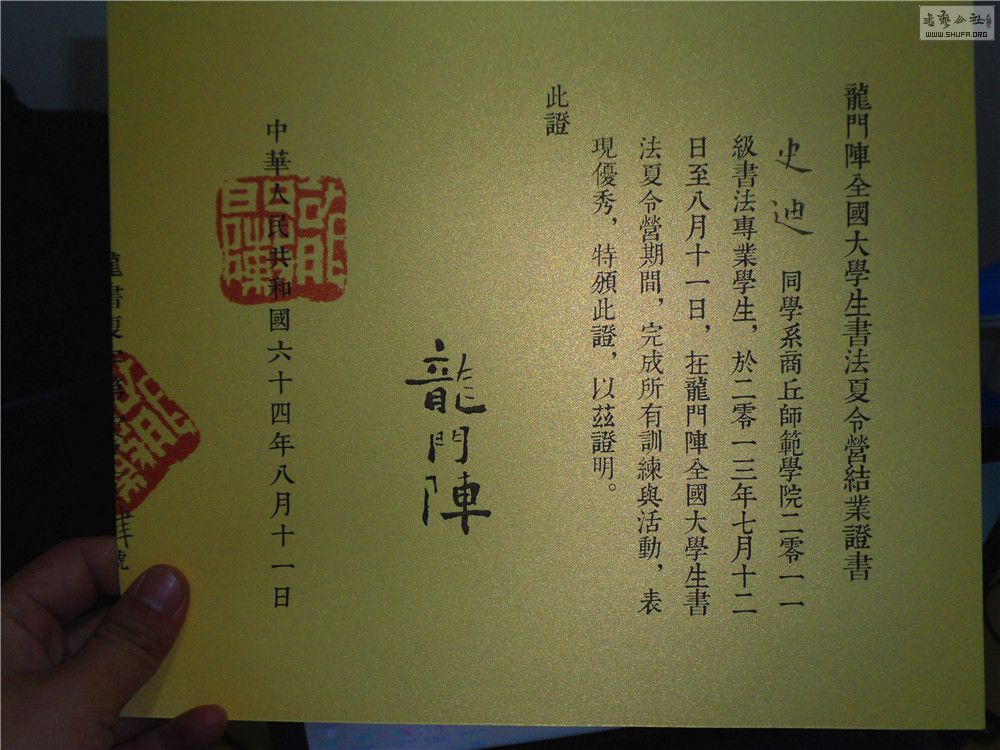 龍門陣全國大學生書法夏令營結業證書
史迪 同學系商丘師範學院二零一一
級書法專業學生，於二零一三年七月十二
日至八月十一日，在龍門陣全國大學生書
法夏令營期間，完成所有訓練與活動，表
現優秀，特頒此證，以茲證明。
此證
龍門陣
中華人民共和國六十四年八月十一日
龍門陣
龍書夏字第
號
書藝公社
WWW.SHUFA.ORG